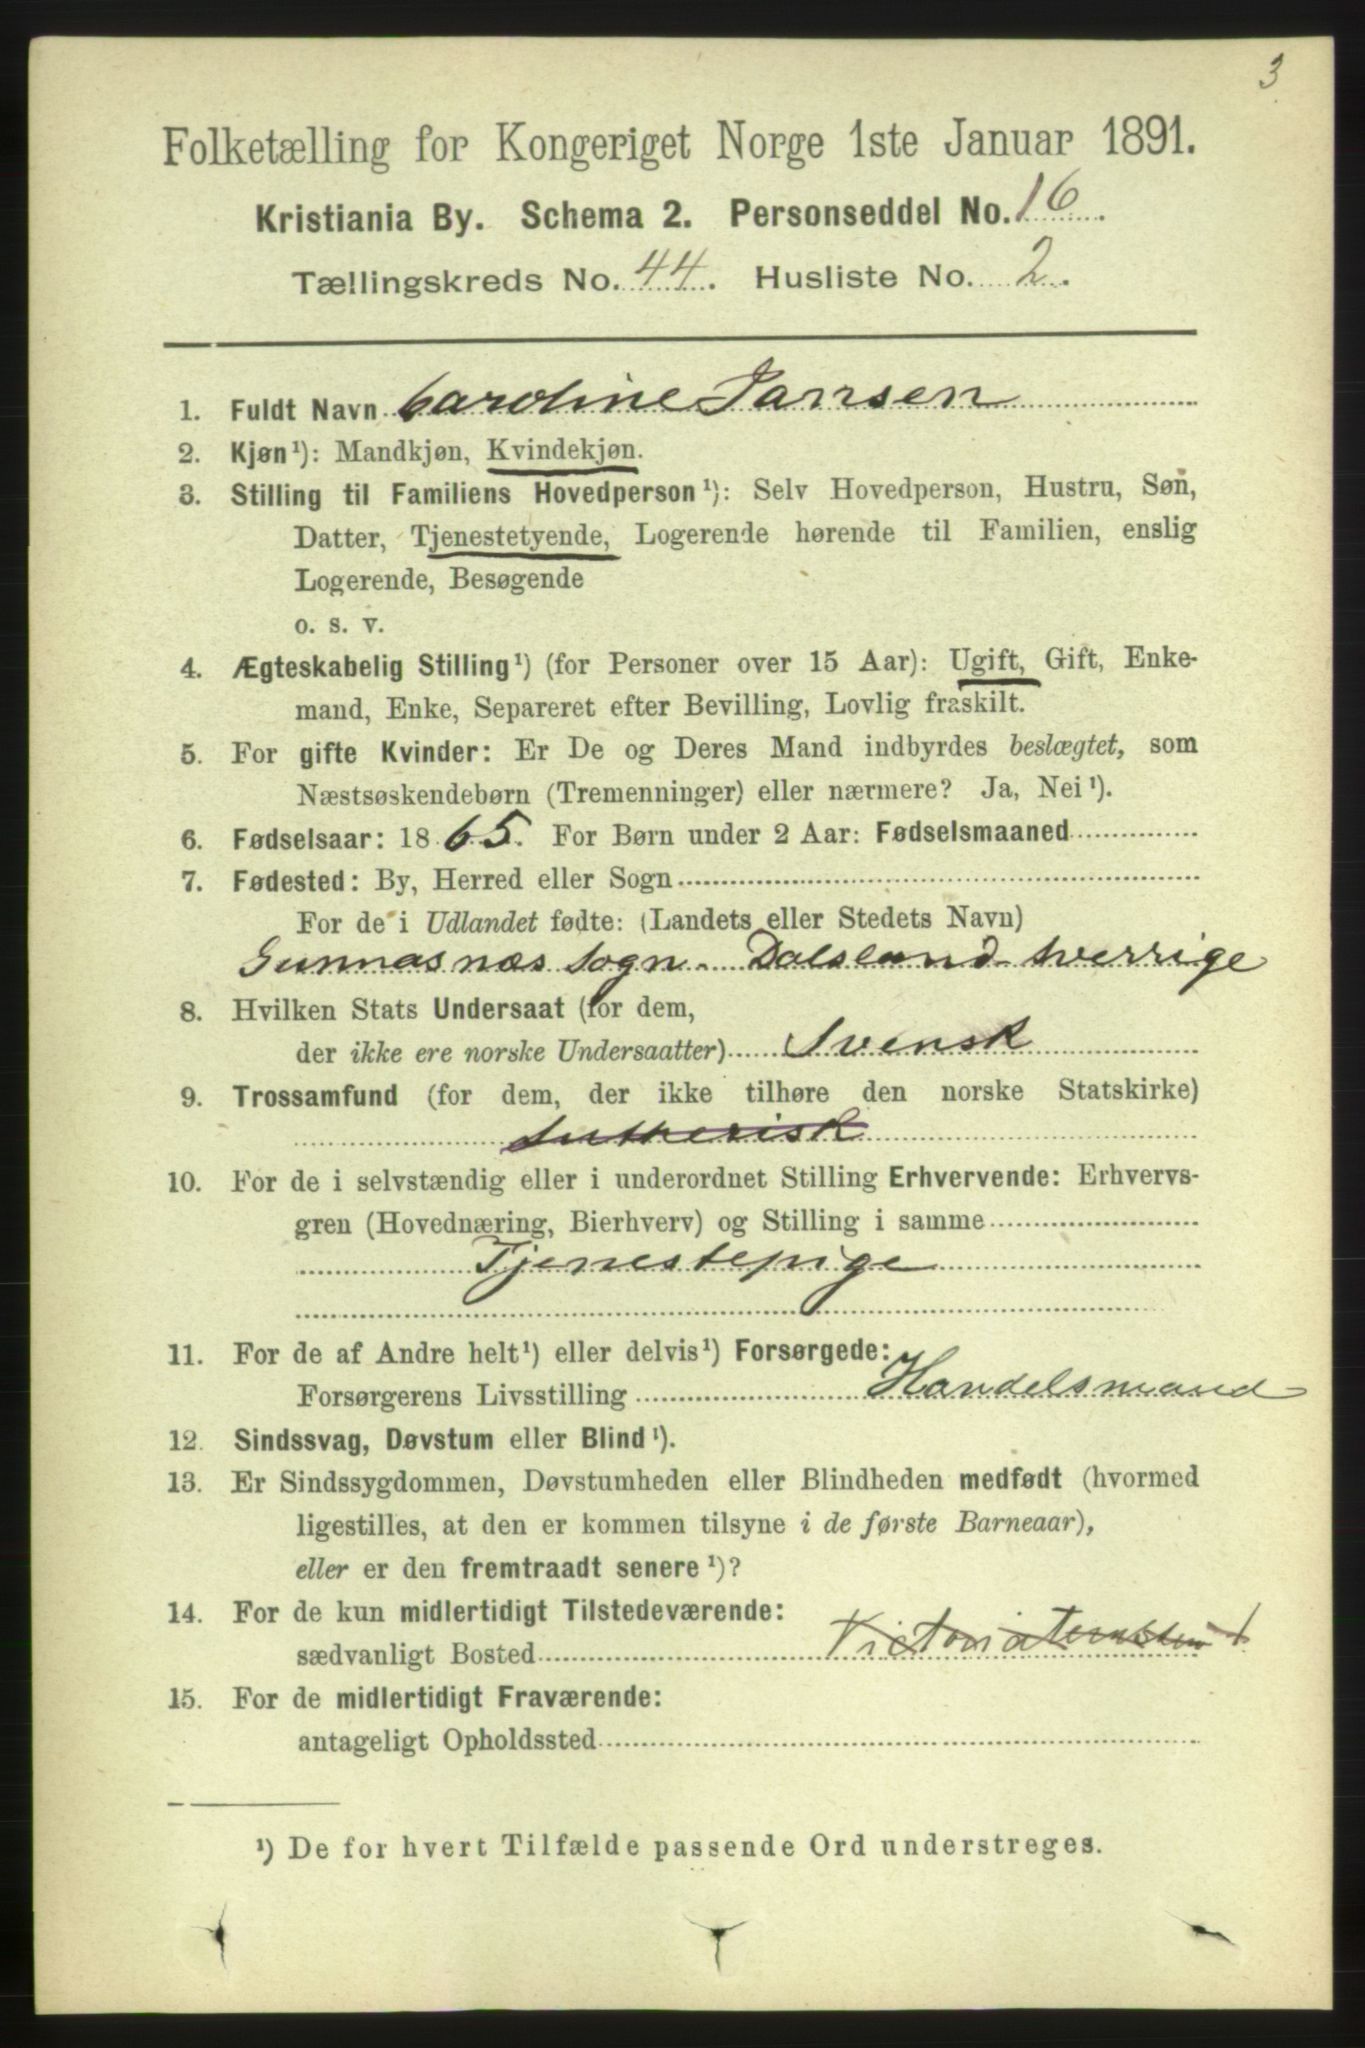 3
Folketælling for Kongeriget Norge 1ste Januar 1891.
Kristiania By. Schema 2. Personseddel No. 16.
Tællingskreds No. 44. Husliste No. 2.
1. Fuldt Navn Caroline Jansen
2. Kjøn¹): Mandkjøn, Kvindekjøn.
3. Stilling til Familiens Hovedperson¹): Selv Hovedperson, Hustru, Søn,
Datter, Tjenestetyende, Logerende hørende til Familien, enslig
Logerende, Besøgende
o. s. v.
4. Ægteskabelig Stilling¹) (for Personer over 15 Aar): Ugift, Gift, Enke-
mand, Enke, Separeret efter Bevilling, Lovlig fraskilt.
5. For gifte Kvinder: Er De og Deres Mand indbyrdes beslægtet, som
Næstsøskendebørn (Tremenninger) eller nærmere? Ja, Nei¹).
6. Fødselsaar: 1865. For Børn under 2 Aar: Fødselsmaaned
7. Fødested: By, Herred eller Sogn
For de i Udlandet fødte: (Landets eller Stedets Navn)
Gunnasnæs Sogn Dalsland Sverrige
8. Hvilken Stats Undersaat (for dem,
der ikke ere norske Undersaatter) Svensk
9. Trossamfund (for dem, der ikke tilhøre den norske Statskirke)
Lutherisk
10. For de i selvstændig eller i underordnet Stilling Erhvervende: Erhvervs-
gren (Hovednæring, Bierhverv) og Stilling i samme
Tjenestepige
11. For de af Andre helt¹) eller delvis¹) Forsørgede:
Forsørgerens Livsstilling Handelsmand
12. Sindssvag, Døvstum eller Blind¹).
13. Er Sindssygdommen, Døvstumheden eller Blindheden medfødt (hvormed
ligestilles, at den er kommen tilsyne i de første Barneaar),
eller er den fremtraadt senere¹)?
14. For de kun midlertidigt Tilstedeværende:
sædvanligt Bosted
15. For de midlertidigt Fraværende:
antageligt Opholdssted
¹) De for hvert Tilfælde passende Ord understreges.